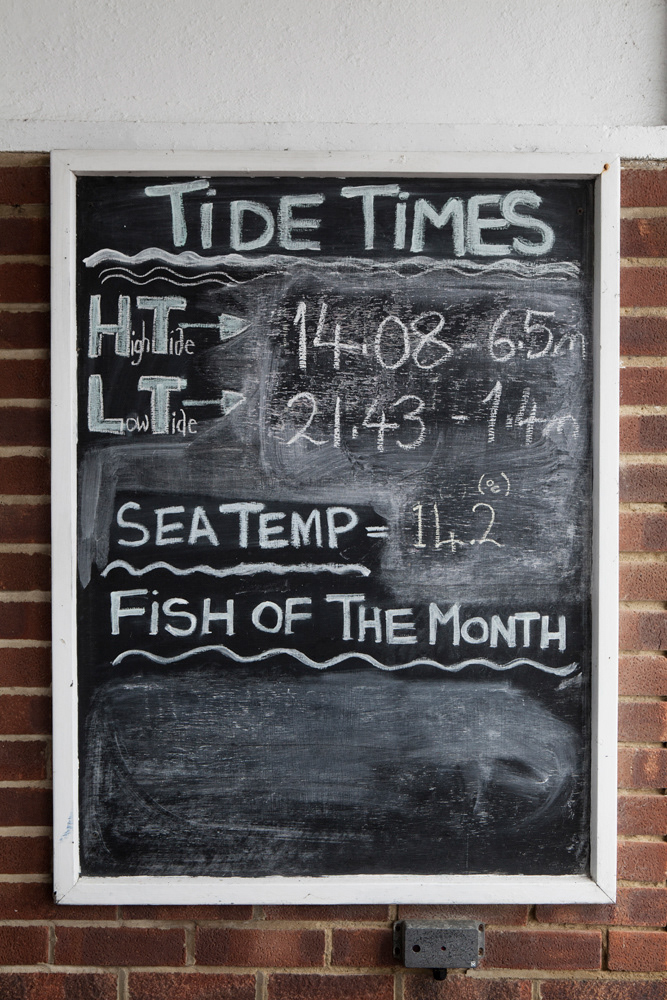 TiDE TiMES
High Tide → 14.08 - 6.5m
Low Tide → 21.43 - 1.4m
(°c)
SEA TEMP = 14.2
FiSH OF THE MONTH